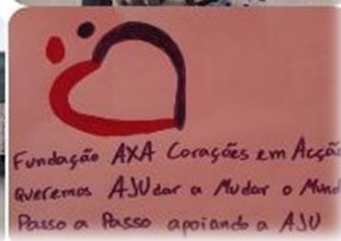 Fundação AXA Corações em Acção
Queremos AJUdar a Mudar o Mund
Passo a Passo apoiando a AJU